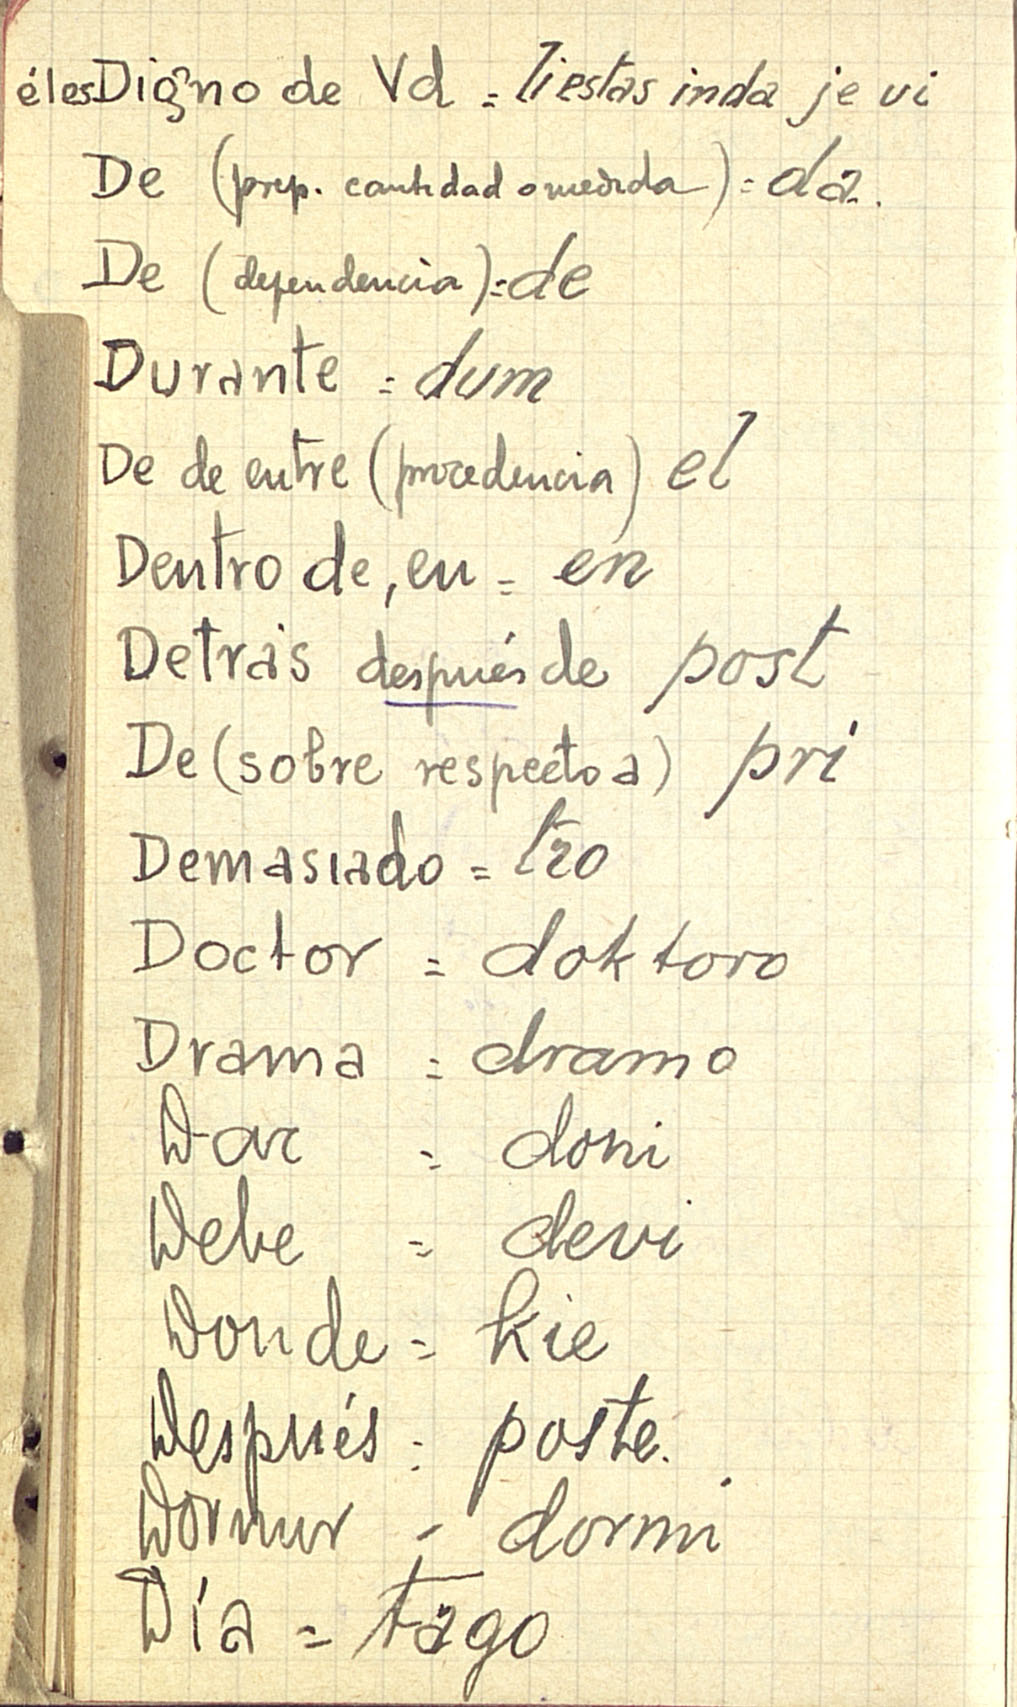 él es Digno de Vd = li estas inda je vi
De (prep. cantidad o medida) = da.
De (dependencia) = de
Durante = dum
De de entre (procedencia) el
Dentro de, en = en
Detrás después de post
De (sobre respecto a) pri
Demasiado = tro
Doctor = doktoro
Drama = dramo
Dar = doni
Debe = devi
Donde = kie
Después = poste.
Dormir - dormi
Día = tago